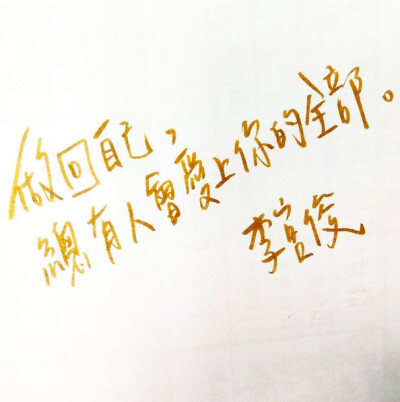 做回自己，
總有人會愛上你的全部。
李宫俊